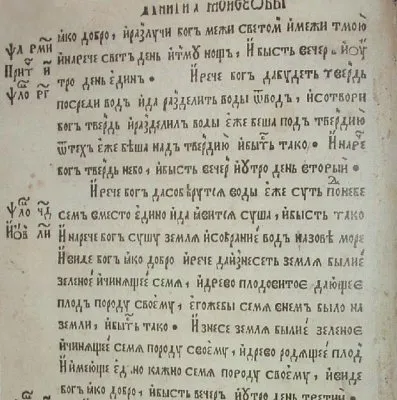 ꙗко добро, и разлꙋчи богъ межи светомъ и межи тмою
и нарече светъ день, и тмꙋ нощъ, И бысть вечеръ и оу
тро день единъ • И рече богъ да бꙋдеть твердь
посреди водъ и да разделить воды ѿ водъ, и сотвори
богъ твердь и разделилъ воды еже беша под твердию
ѿ тех еже беша над твердию и бысть тако • И наре
богъ твердь небо, и бысть вечеръ и оутро день вторый •
И рече богъ да соверꙋтся воды еже сꙋть по небе
семъ вместо едино и да ꙗвится сꙋша, и бысть тако
И нарече богъ сꙋшꙋ земля и собрание водъ назове море
И виде богъ ꙗко добро и рече да изнесеть земля былие
зеленое и чинящее семя, и древо плодовитое дающее
плодъ породꙋ своемꙋ, егоже бы семя в немъ было на
земли, и бысть тако • И знесе земля былие зеленое
и чинящее семя породꙋ своемꙋ, и древо родящее плод
И имеюще едно кажно семя породꙋ своемꙋ, и виде
богъ ꙗко добро, и бысть вечеръ и оутро день третий •